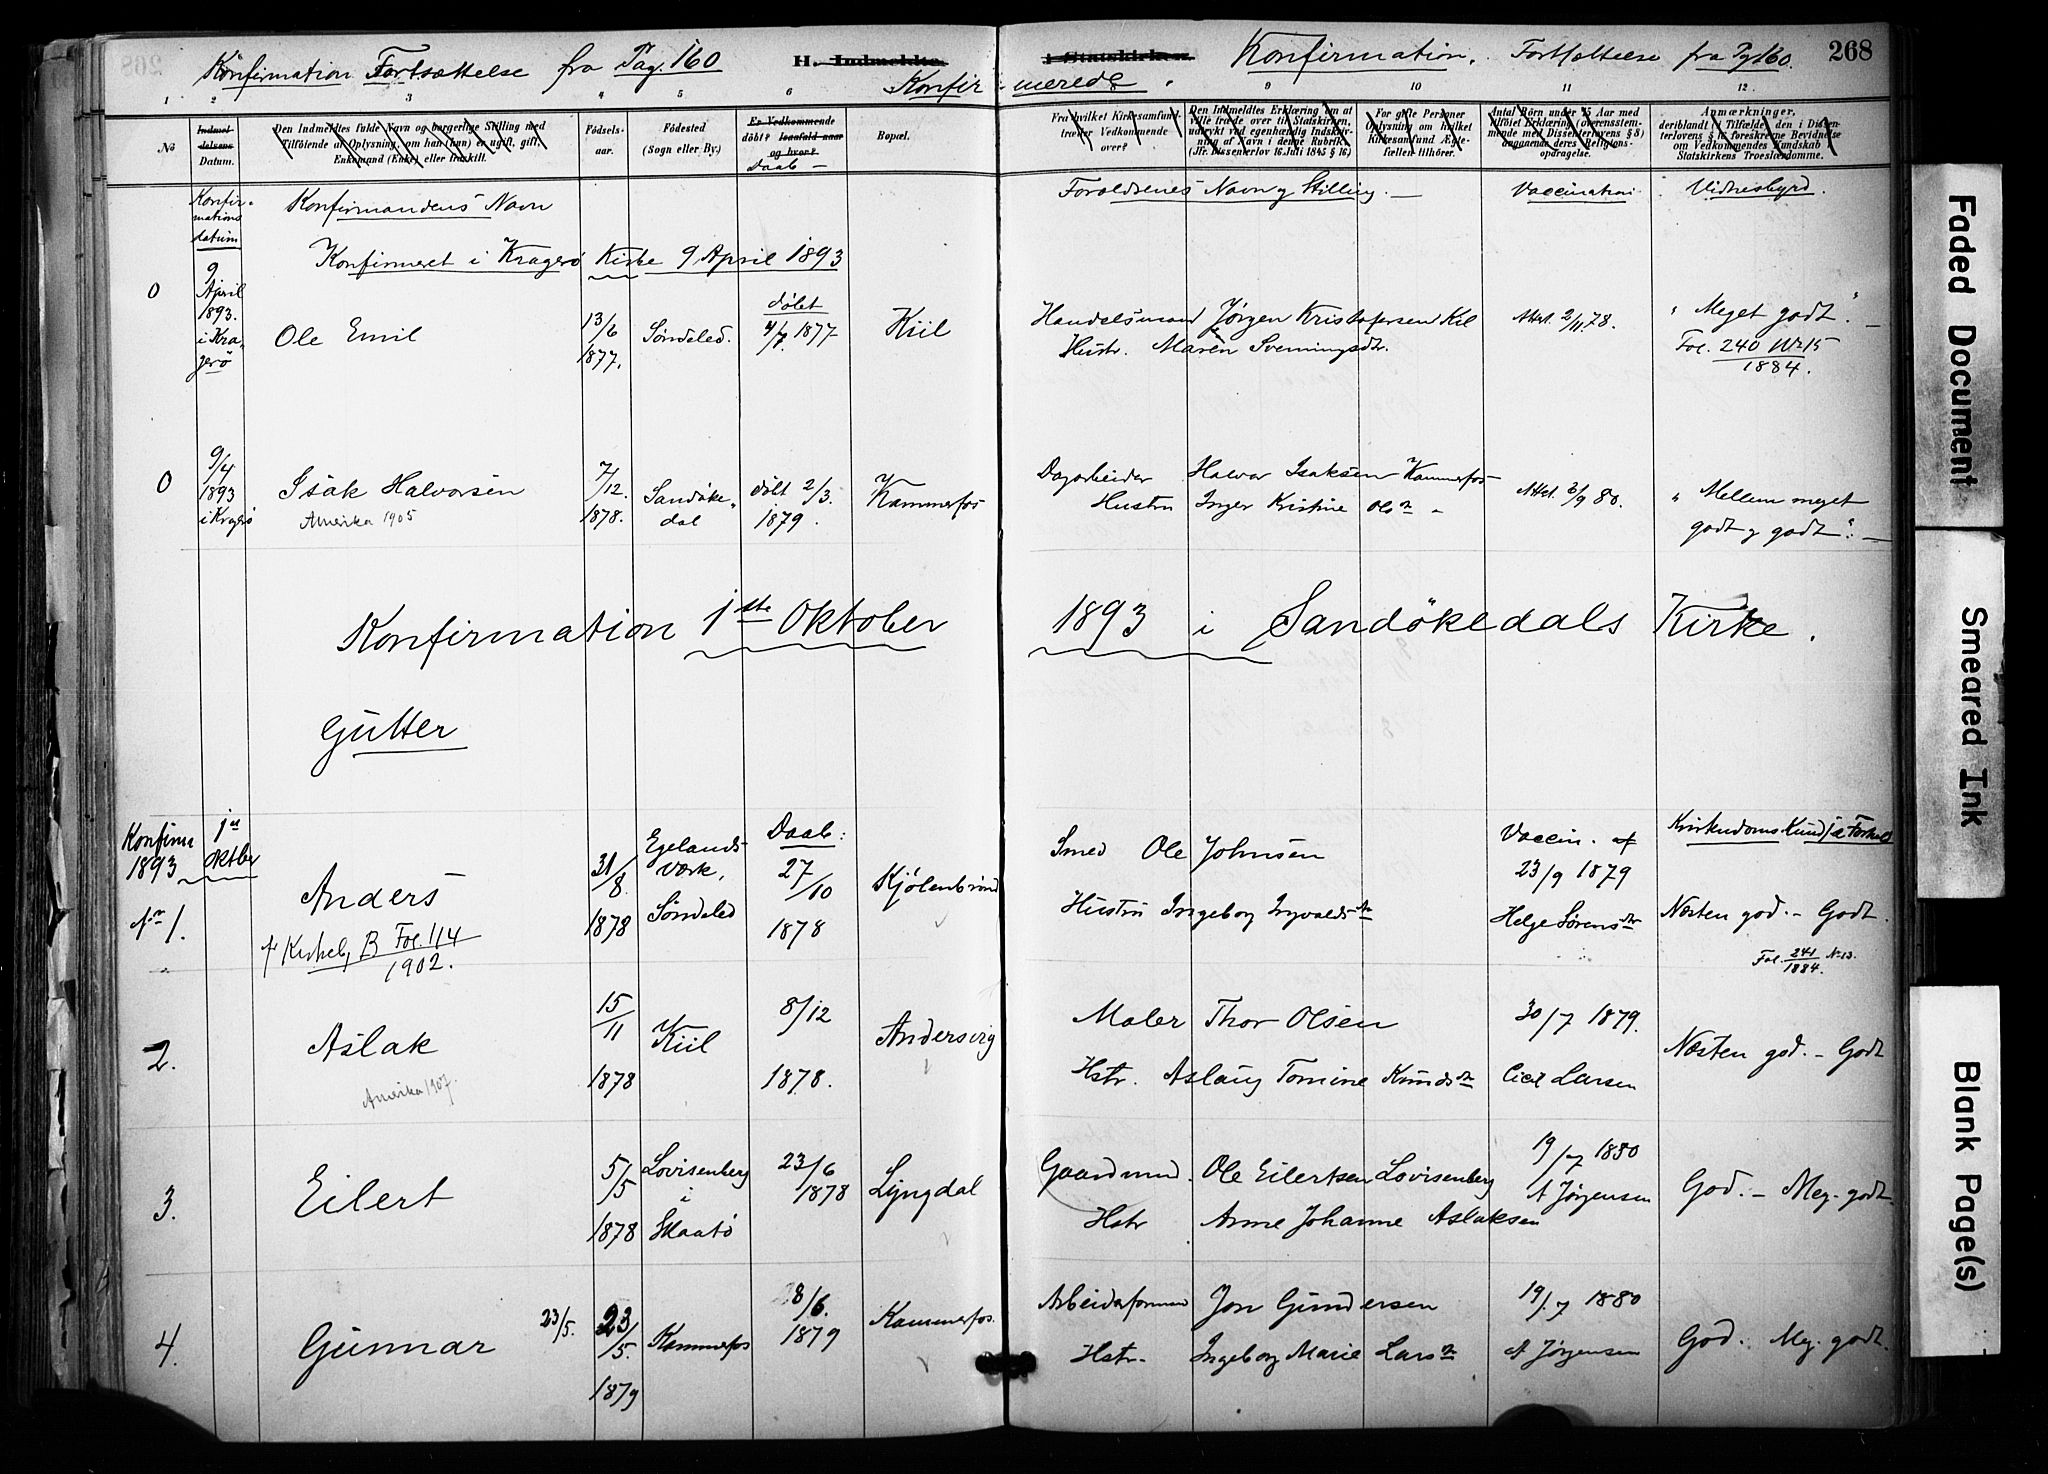 Konfirmation Fortsættelse fra Pag. 160
H. Indmeldte
i Statskirken.
Konfirmerede.
Konfirmation. Fortsættelse fra Pg 160.
268
1 2 3 4 5 6 9 10 11 12
No
Indmeldelsens Datum.
Den Indmeldtes fulde Navn og borgerlige Stilling med Tilføiende af Oplysning, om han (hun) er ugift, gift, Enkemand (Enke) eller fraskilt.
Fødselsaar.
Fødested (Sogn eller By.)
Er Vedkommende døbt? Isaafald naar og hvor?
Daab
Bopæl.
Fra hvilket Kirkesamfund træder Vedkommende over?
Den Indmeldtes Erklæring om at ville træde over til Statskirken, udtrykt ved egenhændig Indskrivning af Navn i denne Rubrik. (Jfr. Dissenterlov 16 Juli 1845 § 16.)
For gifte Personer Oplysning om hvilket Kirkesamfund Ægtefællen tilhører.
Antal Børn under 15 Aar med tilføiet Erklæring (overensstemmende med Dissenterlovens § 8) angaaende deres Religionsopdragelse.
Anmærkninger, deriblandt i Tilfælde den i Dissenterlovens § 16 foreskrevne Bevidnelse om Vedkommendes Kundskab i Statskirkens Troeslærdomme.
Konfirmations datum
Konfirmandens Navn
Forældrenes Navn og Stilling.
Vaccination
Vidnesbyrd.
Konfirmeret i Kragerø Kirke 9 April 1893
0 9 April 1893. i Kragerø
Ole Emil
13/6 1877.
Søndeled.
døbt 1877
Kiil
Handelsmand Jørgen Kristofersen Kil
Hustr. Maren Svenningsdtr.
Attest. 2/11 78.
"Meget godt".
Fol. 240 No 15
1884.
0 9/4 1893 i Kragerø
Isak Halvorsen
Amerika 1905
7/12. 1878.
Sandøkedal
døbt 2/3. 1879.
Kammerfos
Dagarbeider Halvor Isaksen Kammerfos
Hustru Inger Kristine Ols
80.
"Mellem meget
godt og godt".
Konfirmation 1ste Oktober 1893 i Sandøkedals Kirke.
Gutter
Konfirm 1893
1st Oktber
Nr 1.
Anders
Kirkeb, B Fol. 114
1902.
31/8. 1878
Egelands Værk, Søndeled
Daab: 27/10 1878
Kjølebrønd
Smed Ole Johnsen
Hustru Ingeborg Ingvalds
Vaccin. af
23/9 1879
Helge Sørens
Kristendoms Kundsk
Næsten god. - Godt.
Fol. 241 No 13.
1884.
2.
Aslak
Amerika 1907.
15/11 1878
Kiil
8/12 1878.
Andersvig
Maler Thor Olsen
Hstr. Aslaug Tomine Knuds
30/7 1879.
Larsen
Næsten god. - Godt
3.
Eilert
5/5 1878
Lovisenberg i Skaatø
23/6 1878
Lyngdal
Gaardmd. Ole Eilertsen Lovisenberg
Hstr Anne Johanne Aslaksen
19/7 1880
A Jørgensen
God. - Meg. godt
4.
Gunnar 23/5.
23/5. 1879
Kammerfos
8/6. 1879
Kammerfos.
Arbeiderformand Jon Gundersen
Hstr. Ingeborg Marie Lars
19/7 1880
A Jørgensen
God. Meg. godt.
Faded Document
Smeared Ink
Blank Page(s)